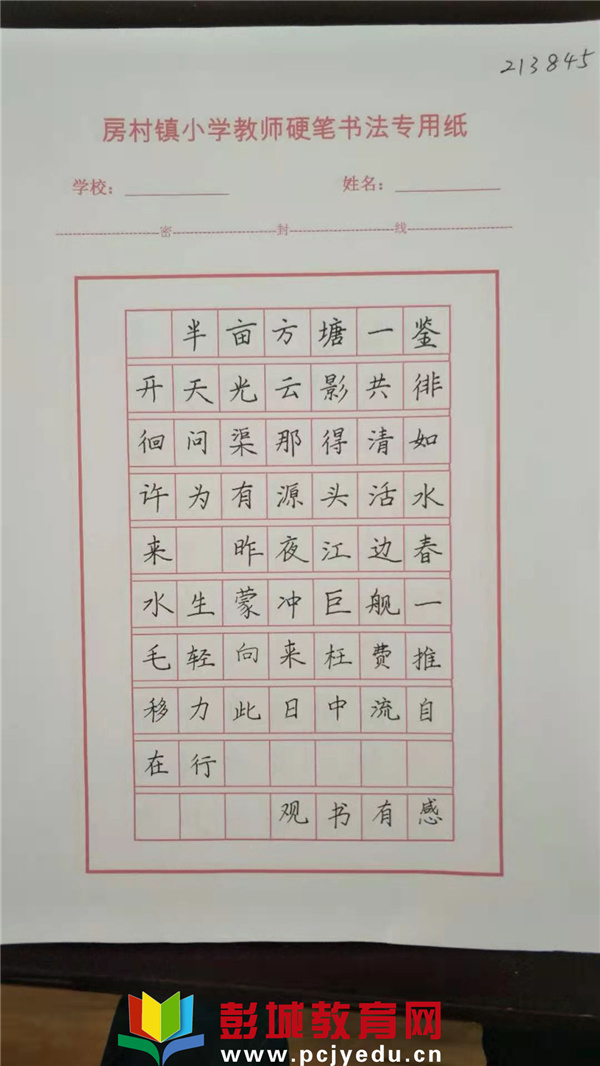 213845
房村镇小学教师硬笔书法专用纸
学校：
姓名：
密 封 线
半亩方塘一鉴
开天光云影共徘
徊问渠那得清如
许为有源头活水
来 昨夜江边春
水生蒙冲巨舰一
毛轻向来枉费推
移力此日中流自
在行
观书有感
彭城教育网
www.pcjyedu.cn